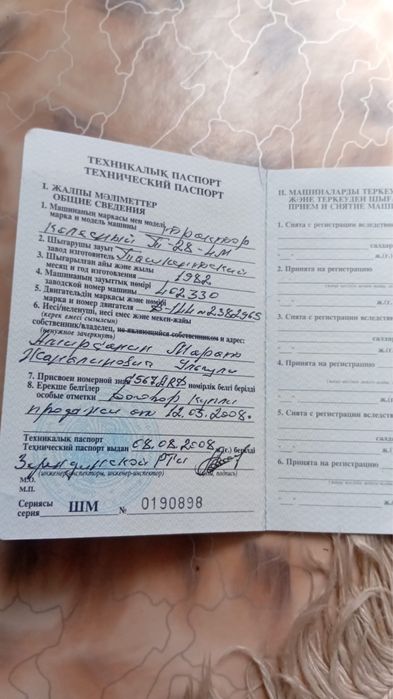 ТЕХНИКАЛЫҚ ПАСПОРТ
ТЕХНИЧЕСКИЙ ПАСПОРТ
I. ЖАЛПЫ МӘЛІМЕТТЕР
ОБЩИЕ СВЕДЕНИЯ
1. Машинаның маркасы мен моделі
марка и модель машины Трактор
Колесный Т-28 4М
2. Шығарушы зауыт
завод изготовитель Ташкентский
3. Шығарылған айы және жылы
месяц и год изготовления 1982
4. Машинаның зауыттық нөмірі
заводской номер машины 402330
5. Двигательдің маркасы және нөмірі
марка и номер двигателя
6. Иесі/иеленуші, иесі емес және мекен-жайы
(керек емесі сызылсын)
собственник/владелец, не являющийся собственником и адрес:
(ненужное зачеркнуть)
Марат
7. Присвоен номерной знак нөмірлік белгі берілді
8. Ерекше белгілер
особые отметки Договор Купли
продажи от 12.03.2008г.
Техникалық паспорт
Технический паспорт выдан 08.08.2008 (г.) берілді
Зерендинской РТИ
(инженер-инспекторы, инженер-инспектор) (қолы, подпись)
М.О.
М.П.
Сериясы
серия ШМ № 0190898
II. МАШИНАЛАРДЫ ТІРКЕУ
ЖӘНЕ ТІРКЕУДЕН ШЫҒ
ПРИЕМ И СНЯТИЕ МАШ
1. Снята с регистрации вследствие
салдар
ж./г.
2. Принята на регистрацию
ж./г.
3. Снята с регистрации вследствие
салдар
ж./г.
4. Принята на регистрацию
ж./г.
5. Снята с регистрации вследст
салда
ж./г.
6. Принята на регистрацию
ж./г.